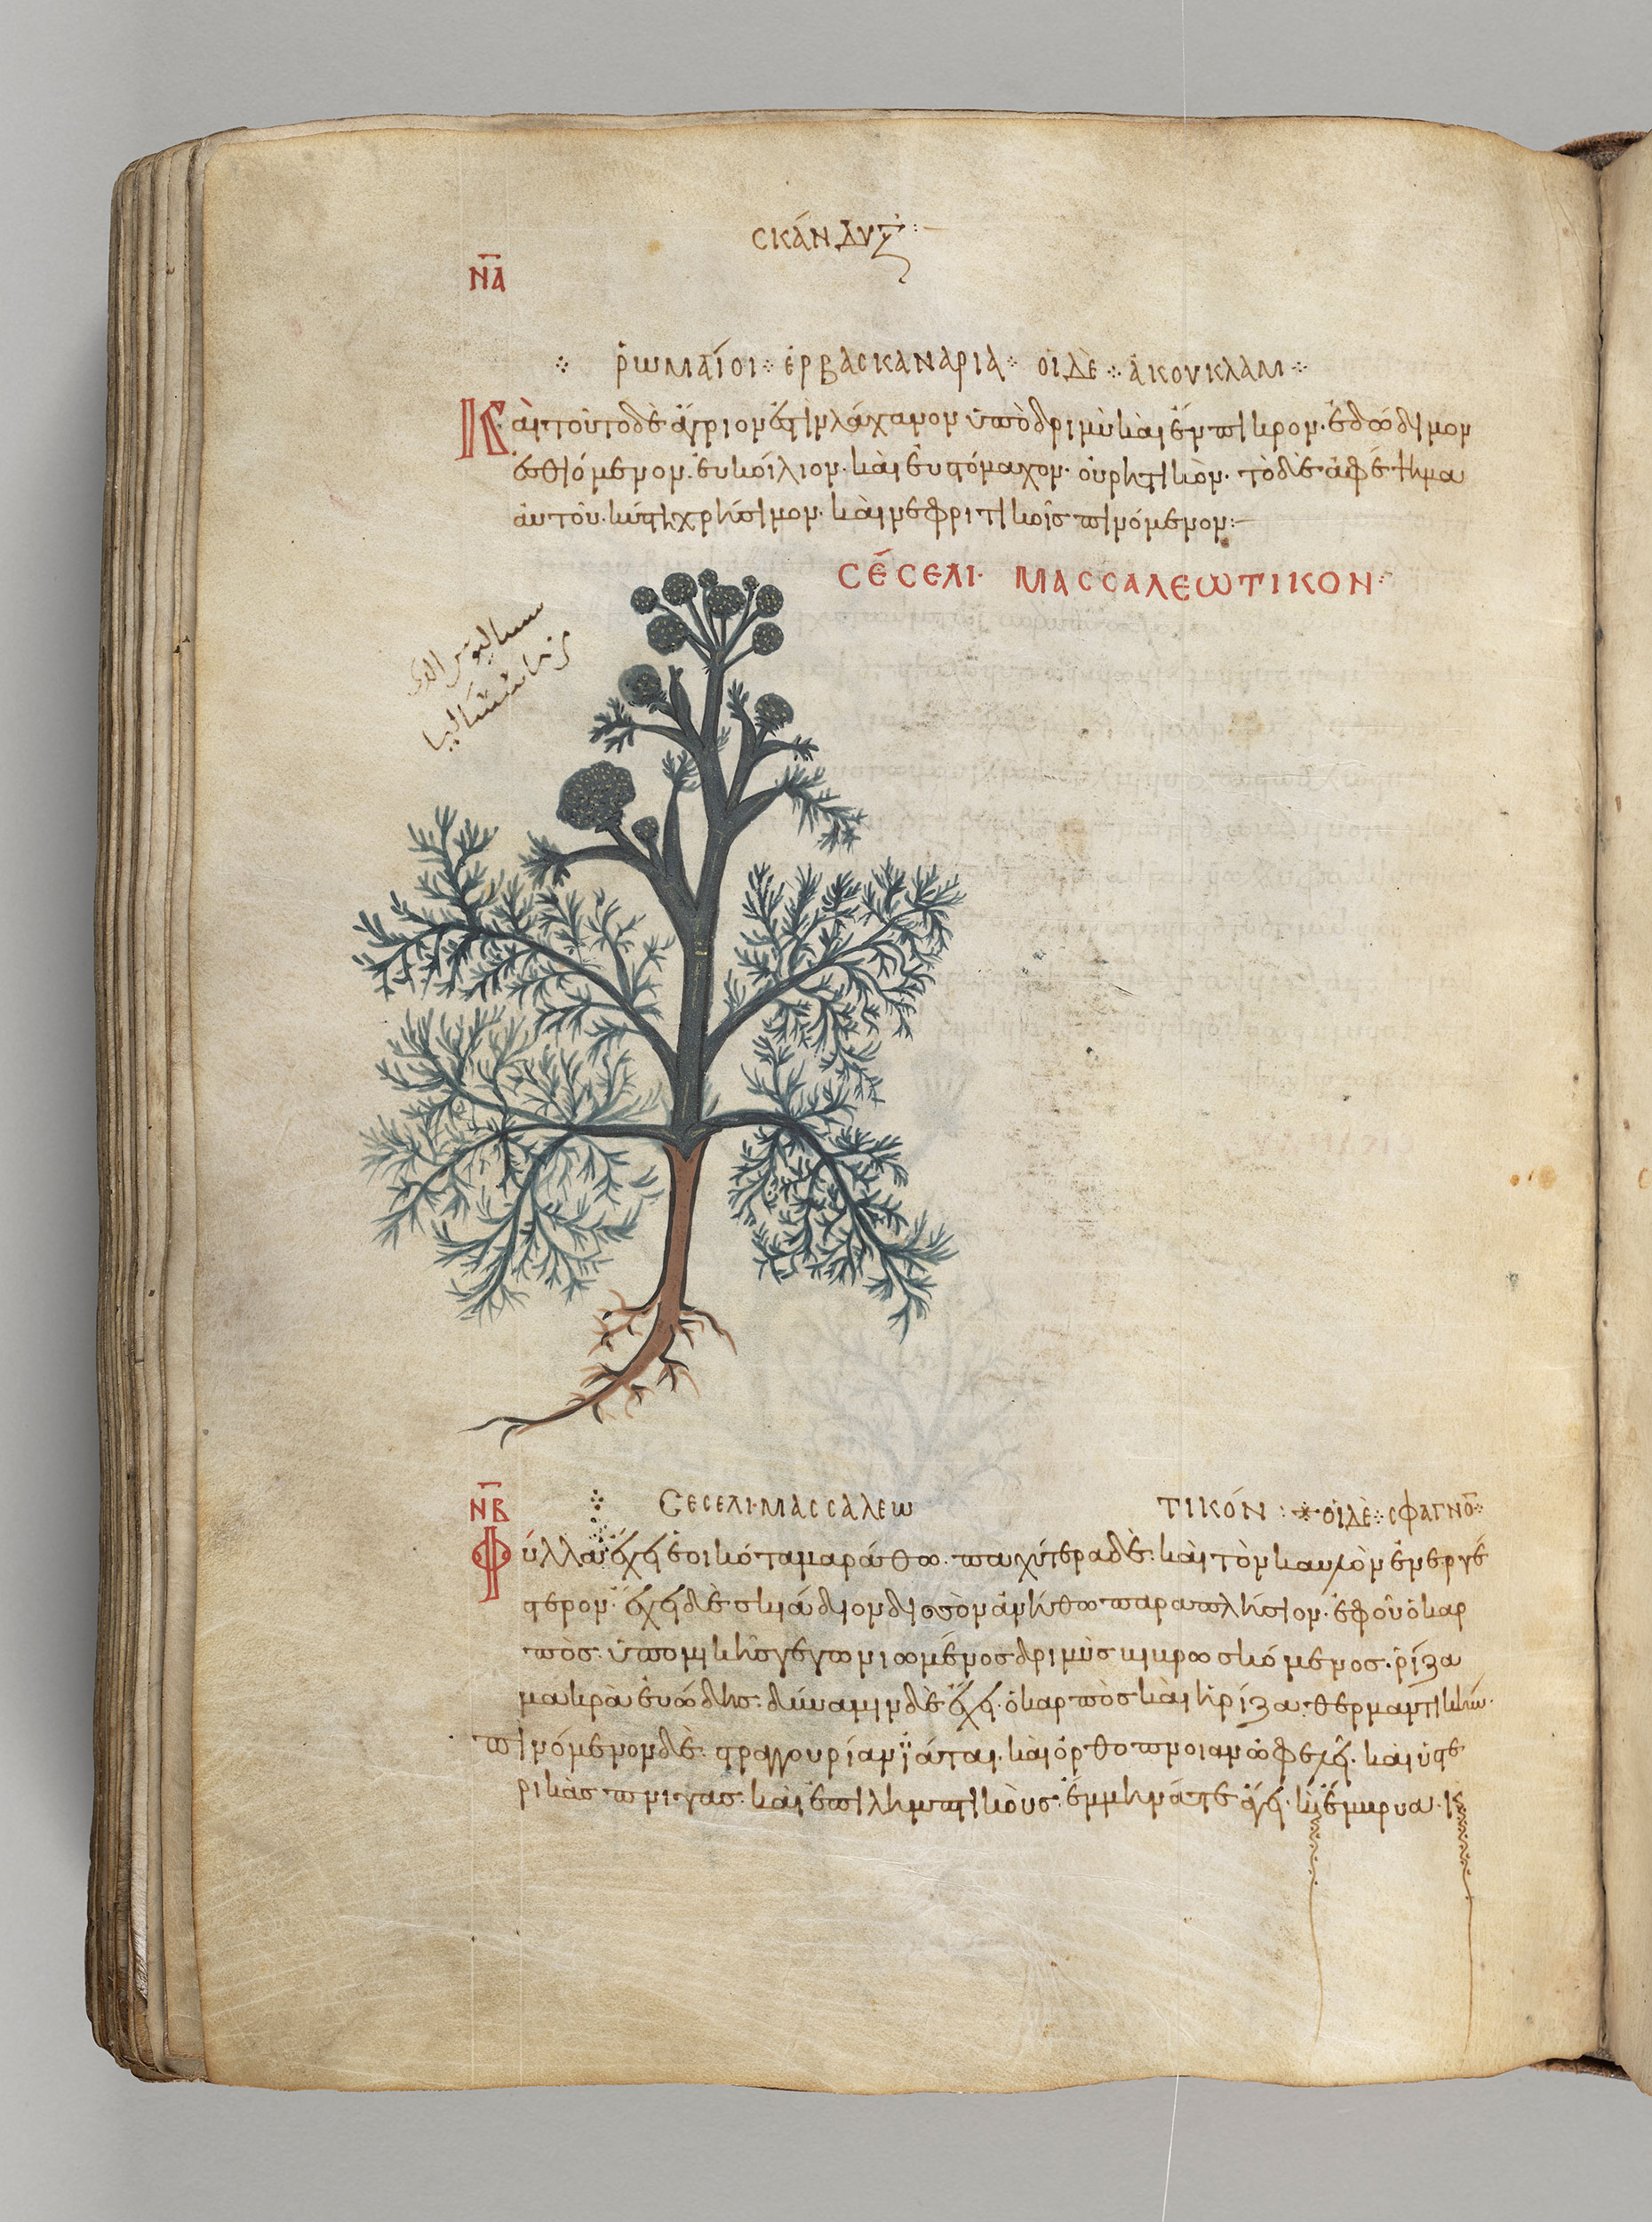 σκάνδυξ:
ΝΑ
ῥωμαῖοι ἑρβασκαναρια οἱδὲ ἀκουκλαμ
Καὶ τοῦτο δὲ ἄγριον ἐστὶν λάχανον ὑπὸδριμὺ καὶ ἔνπικρον· ἐδώδιμον
ἐσθιόμενον· ευκοίλιον· καὶ ἐυστόμαχον· οὐρητικὸν· τὸ δὲ ἀφέψημα
ἀυτοῦ· κύστη χρήσιμον· καὶ νεφριτικοῖς πινόμενον:
ΣΈΣΕΛΙ· ΜΑΣΣΑΛΕΩΤΙΚΟΝ·
سساليوس الذى
ΝΒ
Σεσελι· μασσαλεω τικόν : οἱδὲ σφαγνο
Φύλλα ἔχει ἐοικότα μαράθω· παχύτερα δὲ· καὶ τὸν καυλὸν ἐνεργέ
στερον· ἔχει δὲ σκιάδιον δισσὸν ἀνήθω παραπλήσιον· ἐφ οὗ ὁ καρ
πὸς· ὑπομήκης γεγωνιωμένος δριμὺς πικρωσκόμενος· ῥίζα
μακρὰ ἐυώδης· δύναμιν δὲ ἔχει· ὁ καρπὸς καὶ ἡ ρίζα· θερμαντικήν·
πινόμενον δὲ· στραγγουρίαν ϊάται· καὶ ὀρθοπνοιαν ὠφελεῖ· καὶ ὑστε
ρικὰς πνιγας· καὶ ἐπιληπτικοὺς· ἔμμηνά τε ἄγει· κὶ ἔμβρυα· κ